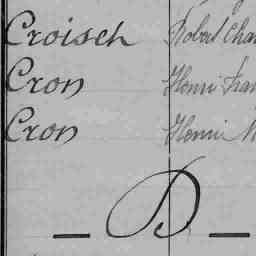 Croisch Robert Char
Cron Henri Fran
Cron Henri N
— D —